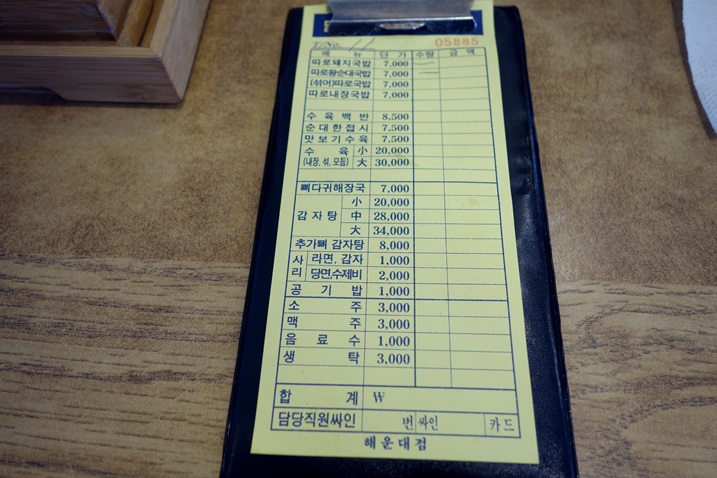 T/No.
05885
메 뉴 단 가 수량 금 액
따로돼지국밥 7,000
따로왕순대국밥 7,000
(섞어)따로국밥 7,000
따로내장국밥 7,000
수 육 백 반 8,500
순 대 한 접 시 7,500
맛 보 기 수 육 7,500
수 육 小 20,000
(내장, 섞, 모듬) 大 30,000
뼈다귀해장국 7,000
小 20,000
감 자 탕 中 28,000
大 34,000
추가뼈 감자탕 8,000
사리 라면, 감자 1,000
당면,수제비 2,000
공 기 밥 1,000
소 주 3,000
맥 주 3,000
음 료 수 1,000
생 탁 3,000
합 계 W
담당직원싸인 번 싸인 카드
해운대점